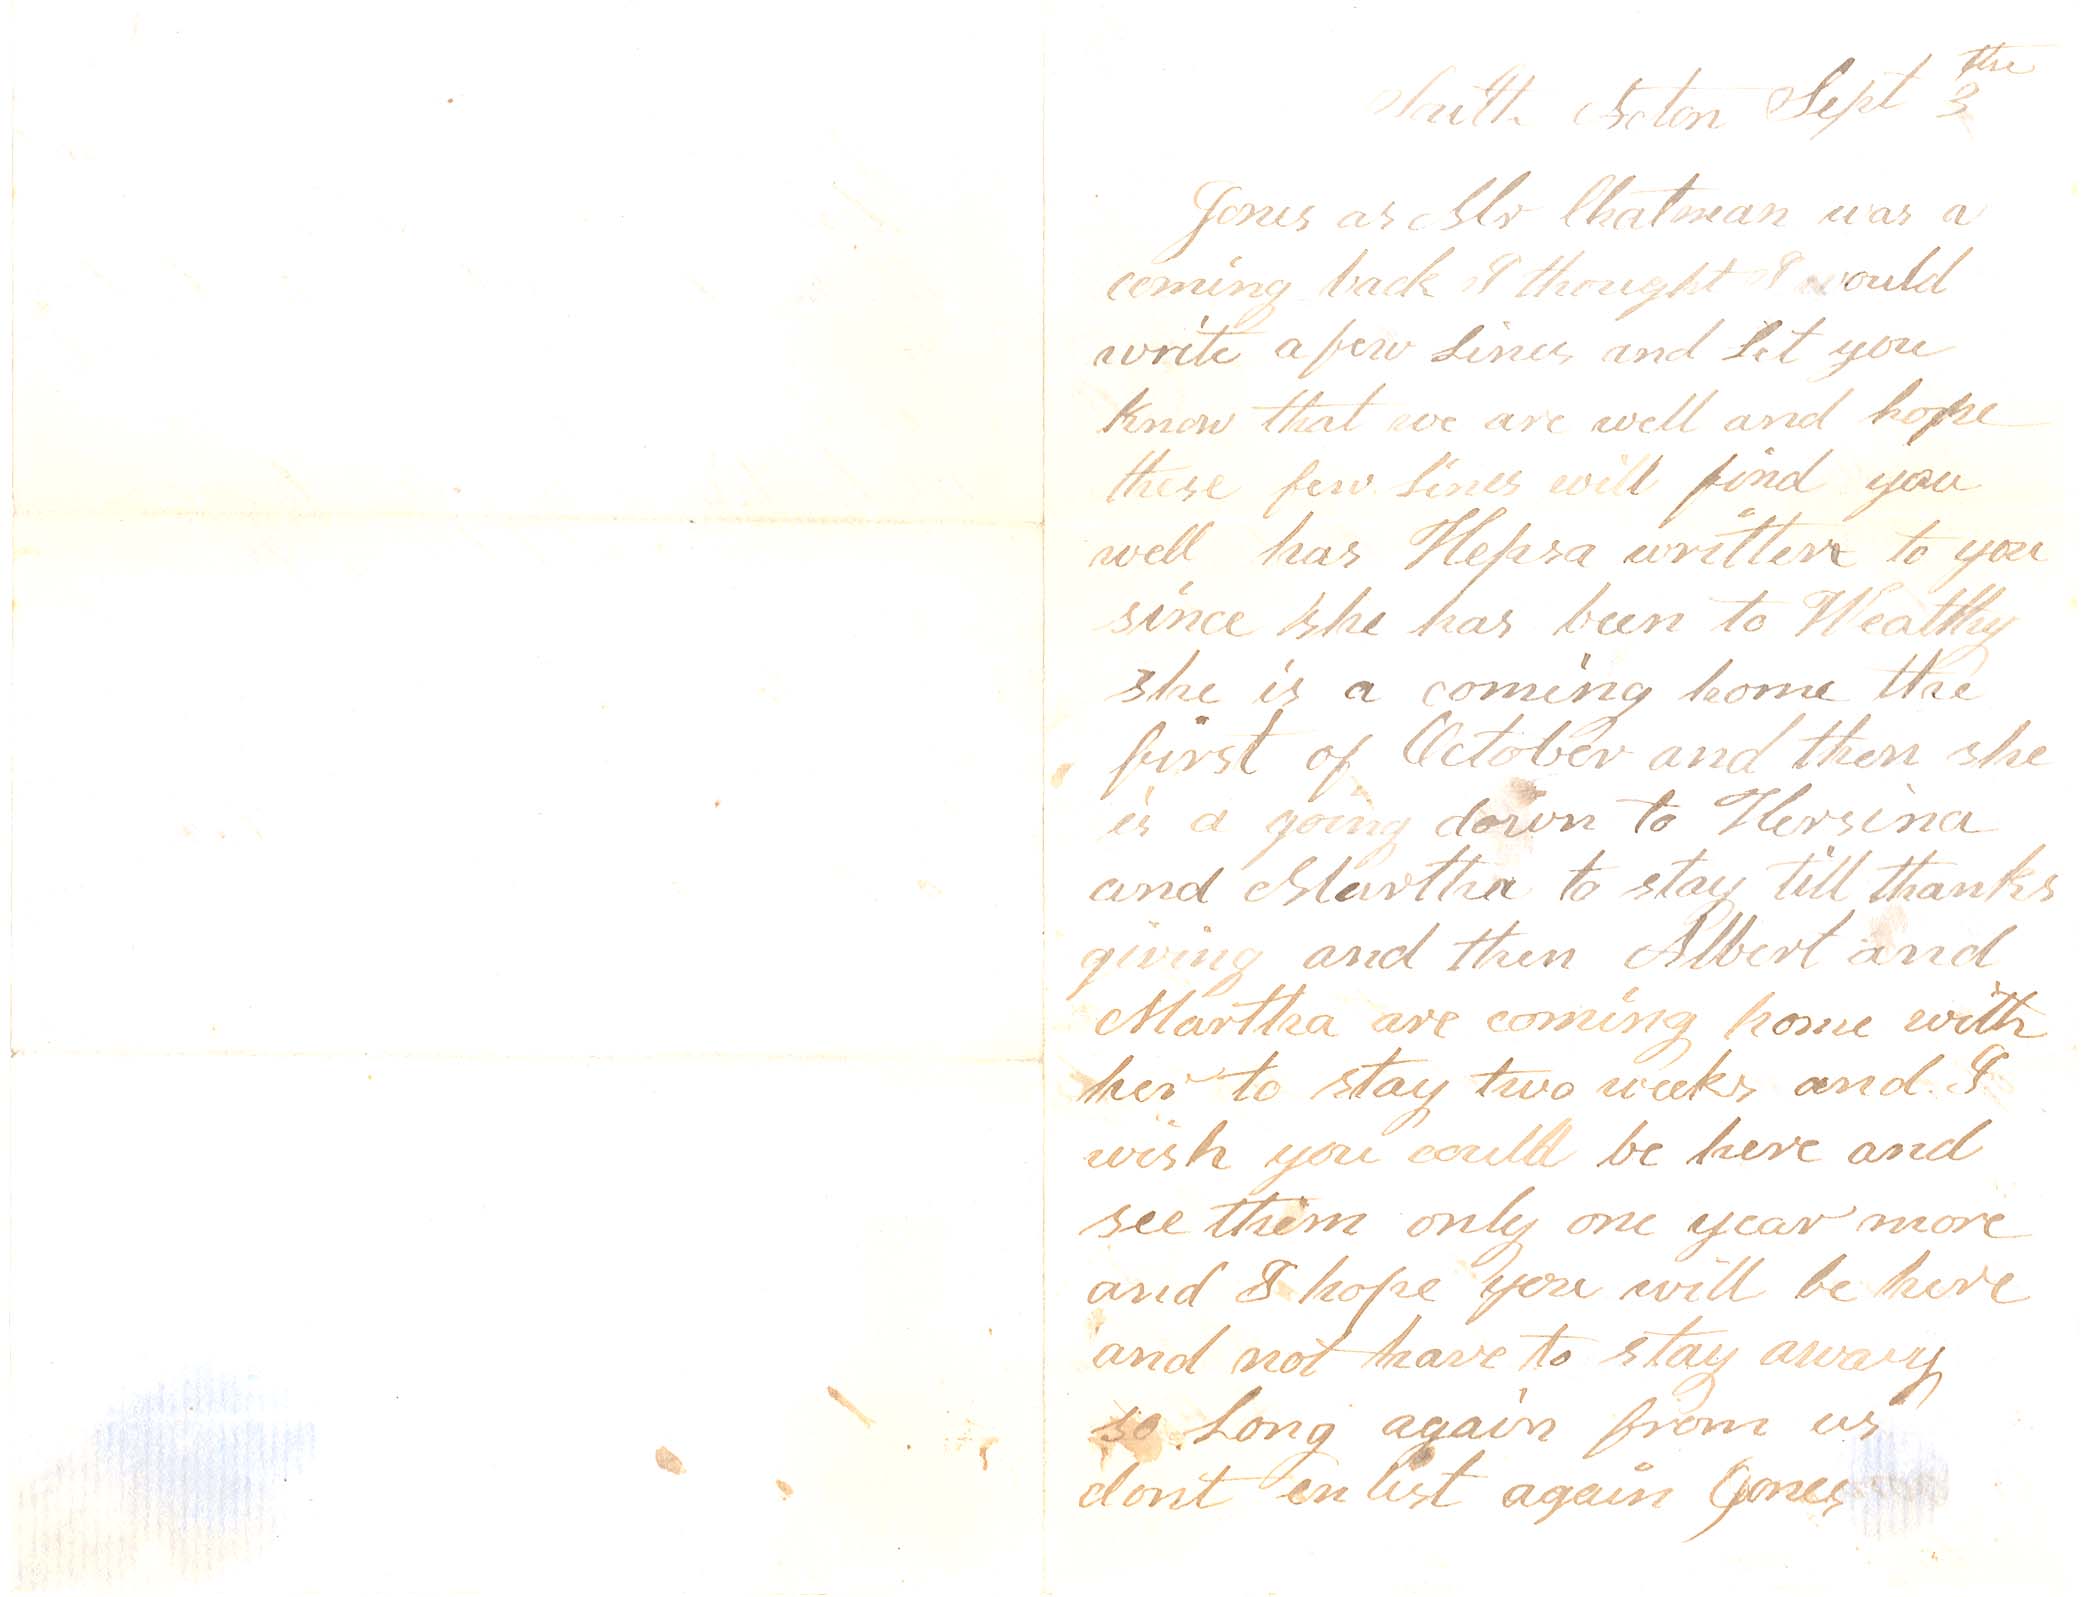 South Acton Sept 3 the
Jones as Mr Chatman was a
coming back I thought I would
write a few Lines and Let you
know that we are well and hope
these few Lines will find you
well has Hepsa written to you
since she has been to Wealthy
she is a coming home the
first of October and then she
is a going down to Hersina
and Martha to stay till thanks
giving and then Albert and
Martha are coming home with
her to stay two weeks and I
wish you could be here and
see them only one year more
and I hope you will be here
and not have to stay away
so Long again from us
dont en list again Jones